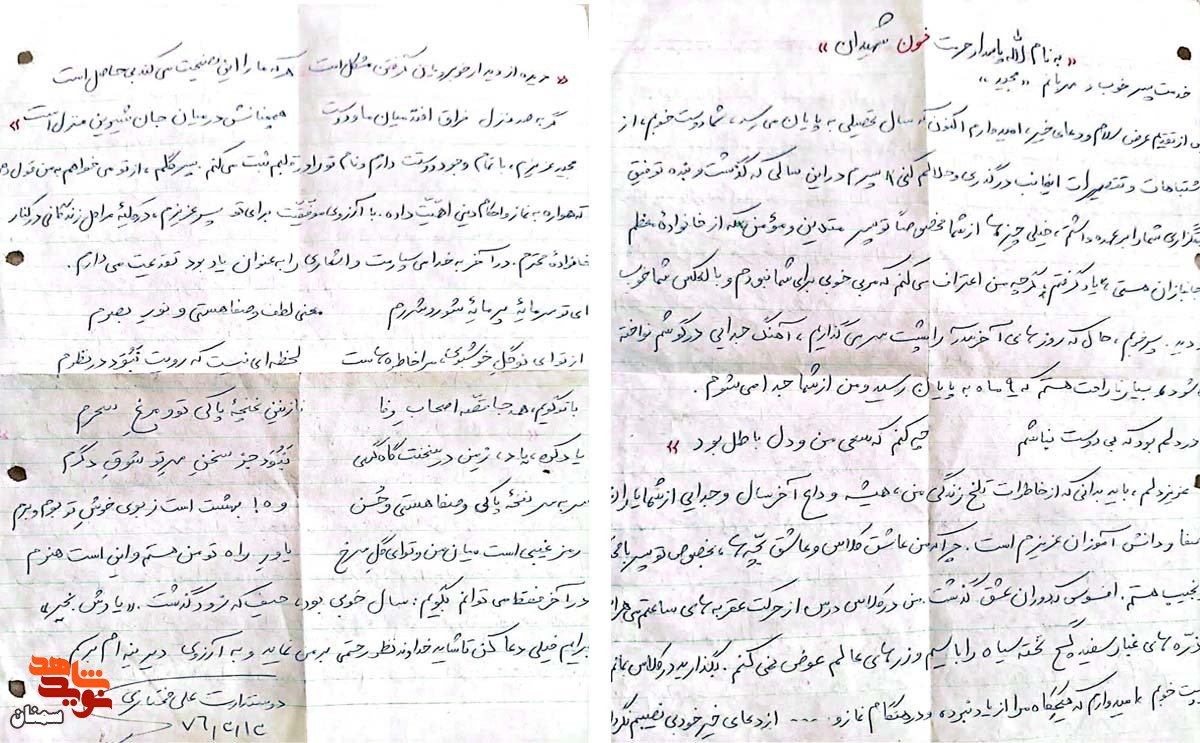 « به نام الله پاسدار حرمت خون شهیدان »
خدمت پسر خوب و مهربانم « مجید »
پس از تقدیم عرض سلام و دعای خیر، امیدوارم اکنون که سال تحصیلی به پایان می‌رسد، شما دوست خوبم، از
اشتباهات و تقصیرات اینجانب درگذری و حلالم کنی. پسرم در این سالی که گذشت و بنده توفیق
شما را بر عهده داشتم، خیلی چیزها از شما مخصوصاً تو پسر متدین و مؤمن که از خانواده معظم
جانبازان هستی، یاد گرفتم. گرچه من اعتراف می‌کنم که مربی خوبی برای شما نبودم و بالعکس شما خوب
بودید. پسرخوبم، حال که روزهای آخر را پشت سر می‌گذاریم، آهنگ جدایی در گوشم نواخته
می‌شود، بسیار ناراحت هستم که ۹ ماه به پایان رسید و من از شما جدا می‌شوم.
در دلم بود که بی دوست نباشم
چه کنم که سعی من و دل باطل بود »
عزیز دلم، باید بدانی که از خاطرات تلخ زندگی من، همیشه وداع آخر سال و جدایی از شما یاران
باصفا و دانش آموزان عزیزم است. چرا که من عاشق کلاس و عاشق بچّه‌ها، بخصوص تو پسر با
نجیب هستم. افسوس که دوران عشق گذشت. من در کلاس درس از حرکت عقربه‌های ساعتم می‌هراسم
ذرّه‌های غبار سفید گچ تخته سیاه را با سیم و زرهای عالم عوض نمی‌کنم. بگذارید در کلاس بمانم
دوست خوبم، امیدوارم که هیچگاه مرا از یاد نبرده، و در هنگام نماز و .... از دعای خیر خودی نصیبم
« دیده از دیدار خوبرویان گرفتن مشکل است
هر که ما را این نصیحت می‌کند بی‌حاصل است
گر به صد منزل فراق افتد میان ما و دوست
همچنانش در میان جان شیرین منزل است »
مجید عزیزم، با تمام وجود دوستت دارم و نام تو را در قلبم ثبت می‌کنم. پسر گلم، از تو می‌خواهم به من قول دهی
که همواره به نماز و احکام دینی اهمیّت داده. با آرزوی موفّقیّت برای تو پسر عزیزم، در کلیهٔ مراحل زندگانی در کنار
خانوادهٔ محترم. در آخر به خدا می‌سپارمت و اشعاری را به عنوان یادبود تقدیمت می‌دارم.
ای تو سرمایهٔ پر مایهٔ شور و شررم
معنی لطف و صفا هستی و نور بصرم
از تو ای نوگل خوشبوی، مرا خاطره‌هاست
لحظه‌ای نیست که رویت نَبُوَد در نظرم
با تو گویم، همه جا قصّه اصحاب وفا
نازنین غنچهٔ پاکی تو و مرغ سحرم
نَبُوَد جز سخنِ مهر تو شوق دگرم
سر به سر نسخهٔ پاکی و صفا هستی و حُسن
وه! بهشت است ز بوی خوش تو بوم و برم
رمز غیبی است میان من و تو ای گل سرخ
یاور راه تو من هستم و این است هنرم
در آخر فقط می‌توانم بگویم: سال خوبی بود، حیف که زود گذشت. « یادش بخیر »
برایم خیلی دعا کن تا شاید خداوند نظر رحمتی بر من نماید و به آرزوی دیرینه‌ام برسم
دوستدارت علی مختاری
۷۶/۲/۲
نوید شاهد
سمنان